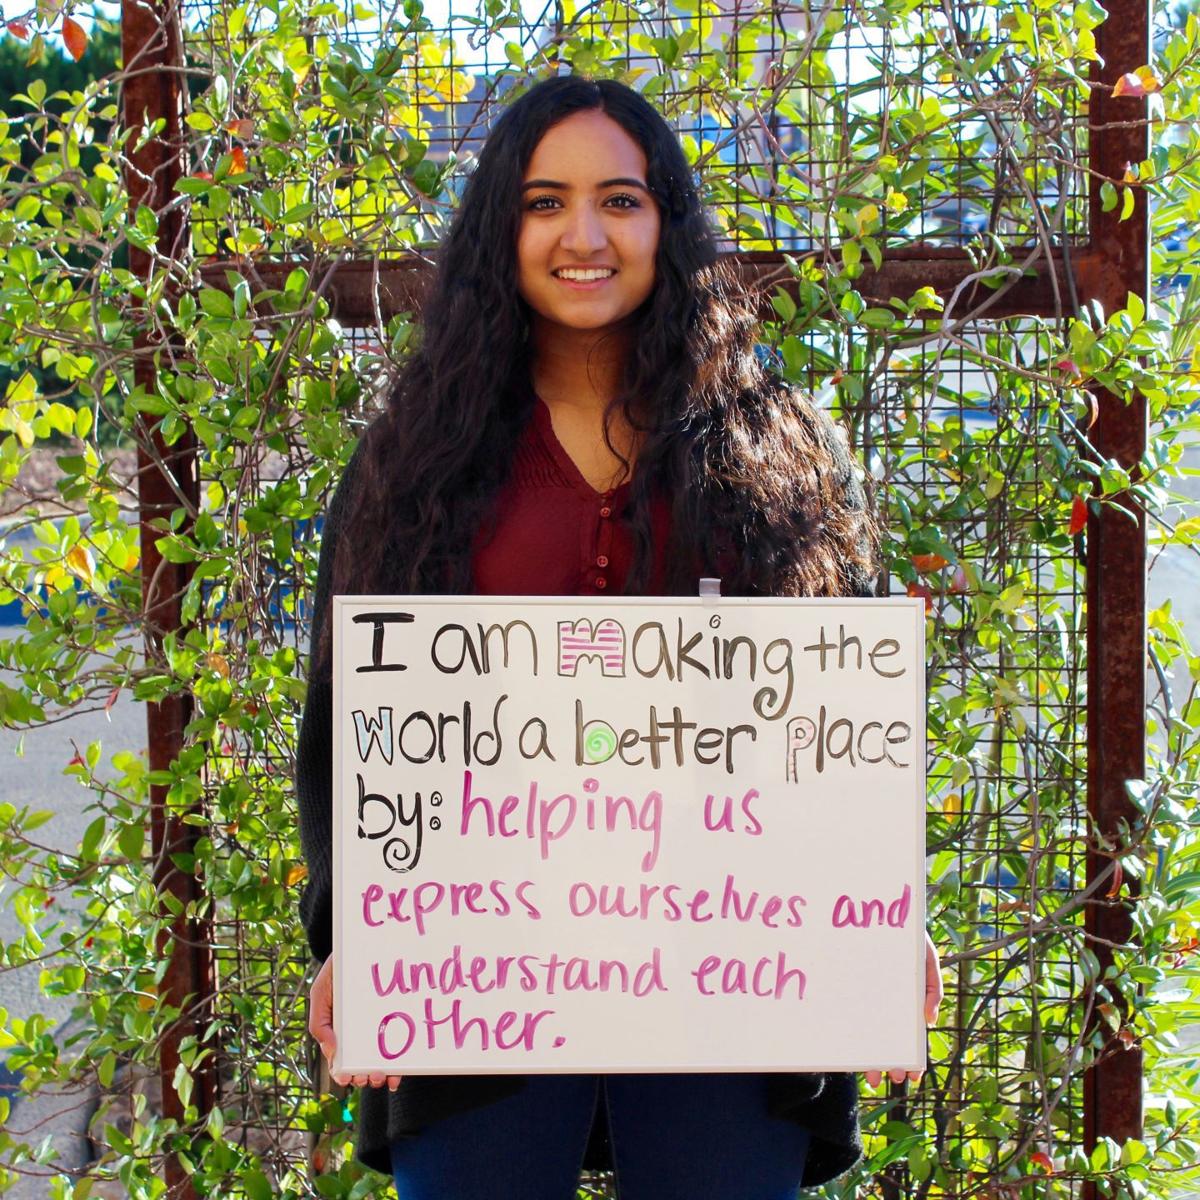 I am making the
world a better place
by: helping us
express ourselves and
understand each
other.